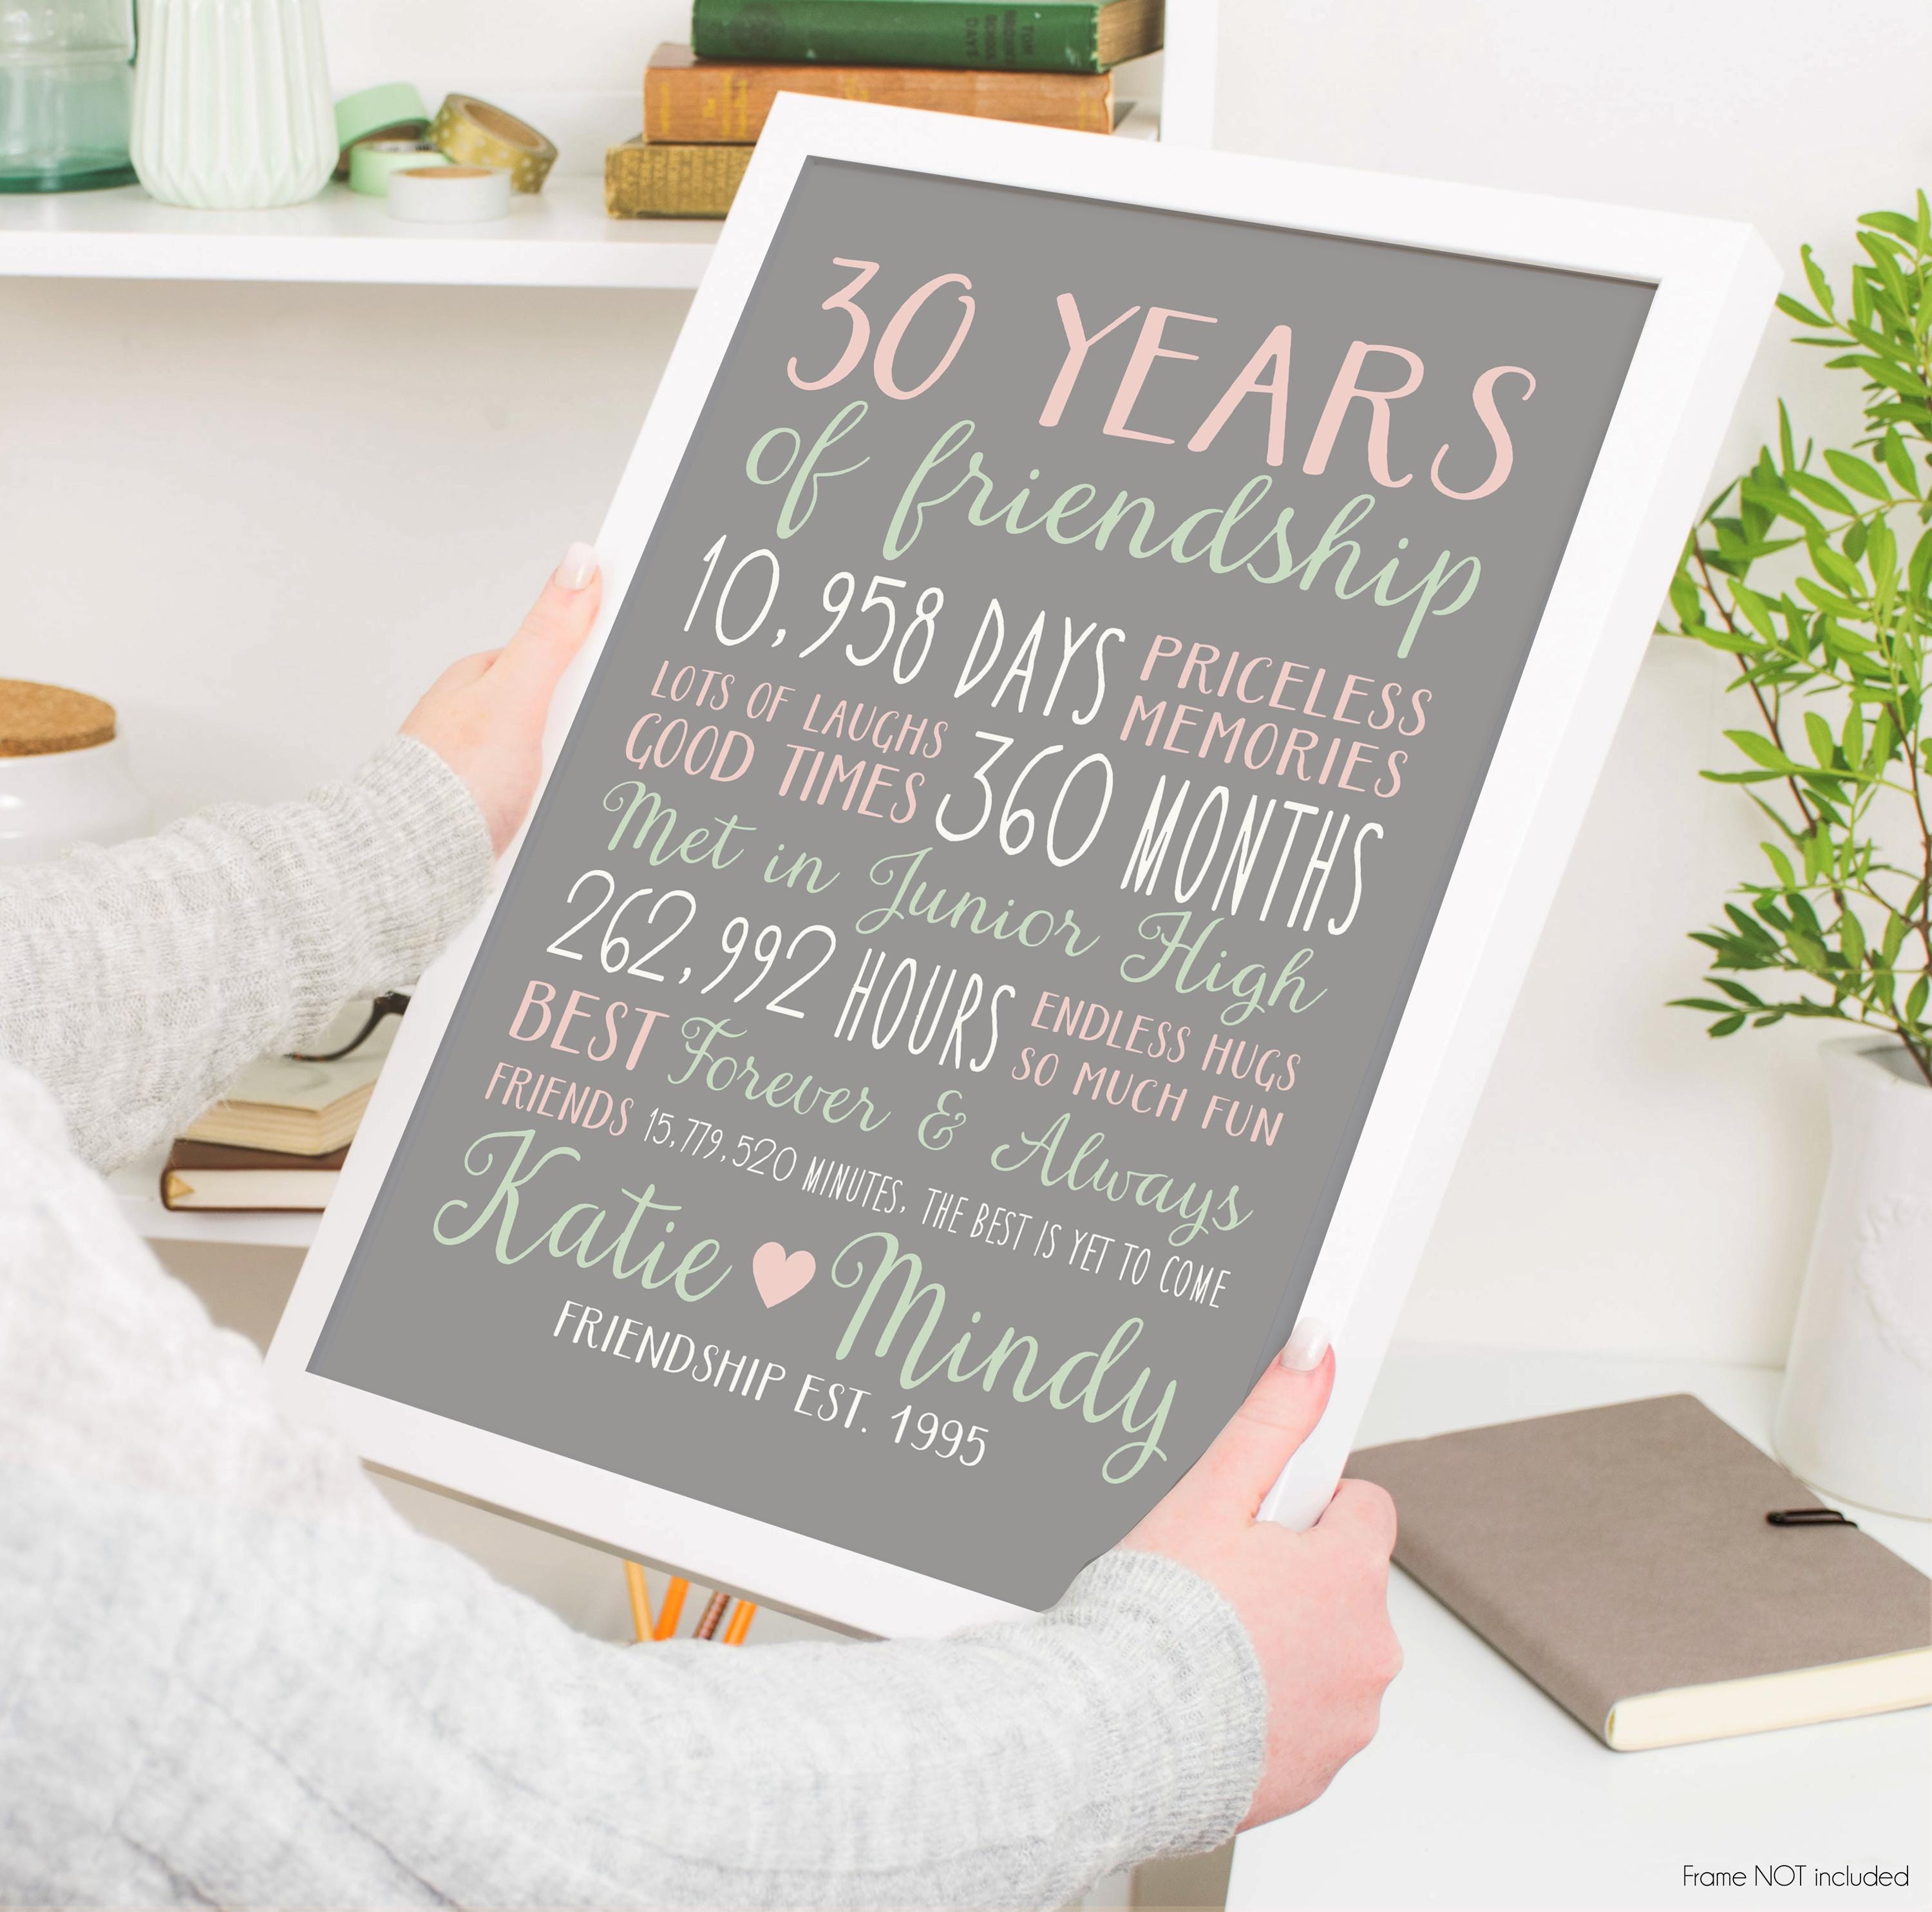 TOM
BROWN'S
SCHOOL
DAYS
30 YEARS
of friendship
10,958 DAYS PRICELESS
MEMORIES
LOTS OF LAUGHS
GOOD TIMES 360 MONTHS
Met in Junior High
262,992 HOURS ENDLESS HUGS
SO MUCH FUN
BEST Forever & Always
FRIENDS 15,779,520 MINUTES, THE BEST IS YET TO COME
Katie Mindy
FRIENDSHIP EST. 1995
Frame NOT included